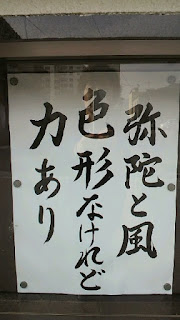 弥陀と風
色形なけれど
力あり